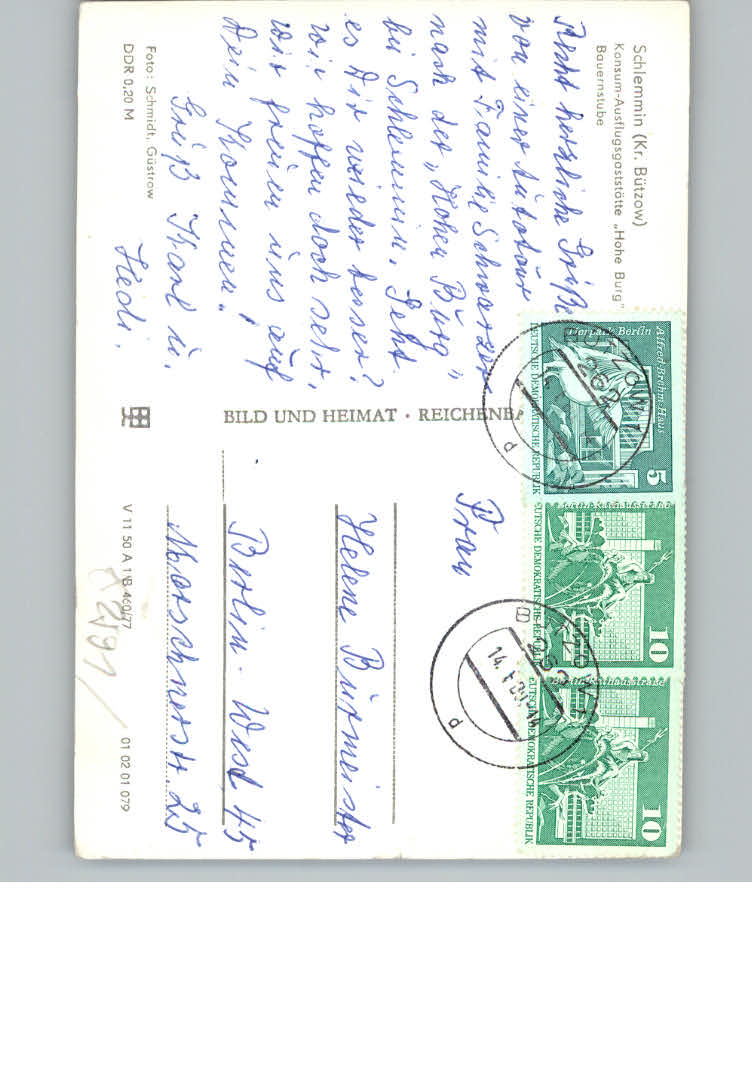 Schlemmin (Kr. Bützow)
Konsum-Ausflugsgaststätte „Hohe Burg"
Bauernstube
Recht herzliche Grüße
von einer Autotour
mit Familie Schwarzer
nach der „Hohen Burg"
bei Schlemmin. Geht
es Dir wieder besser?
Wir hoffen doch sehr,
wir freuen uns auf
Dein Kommen!
Gruß Karl u.
Hedi.
Foto: Schmidt, Güstrow
DDR 0,20 M
BILD UND HEIMAT · REICHENBA
Tierpark Berlin
Alfred-Brehm-Haus
DEUTSCHE DEMOKRATISCHE REPUBLIK
5
DEUTSCHE DEMOKRATISCHE REPUBLIK
10
Rathausstraße
DEUTSCHE DEMOKRATISCHE REPUBLIK
10
BÜTZOW 1
262
BÜTZOW 1
14.
Frau
Helene Burmeister
Berlin-West 45
Morschnerstr. 25
V 11 50 A 1/B 460/77
01 02 01 079